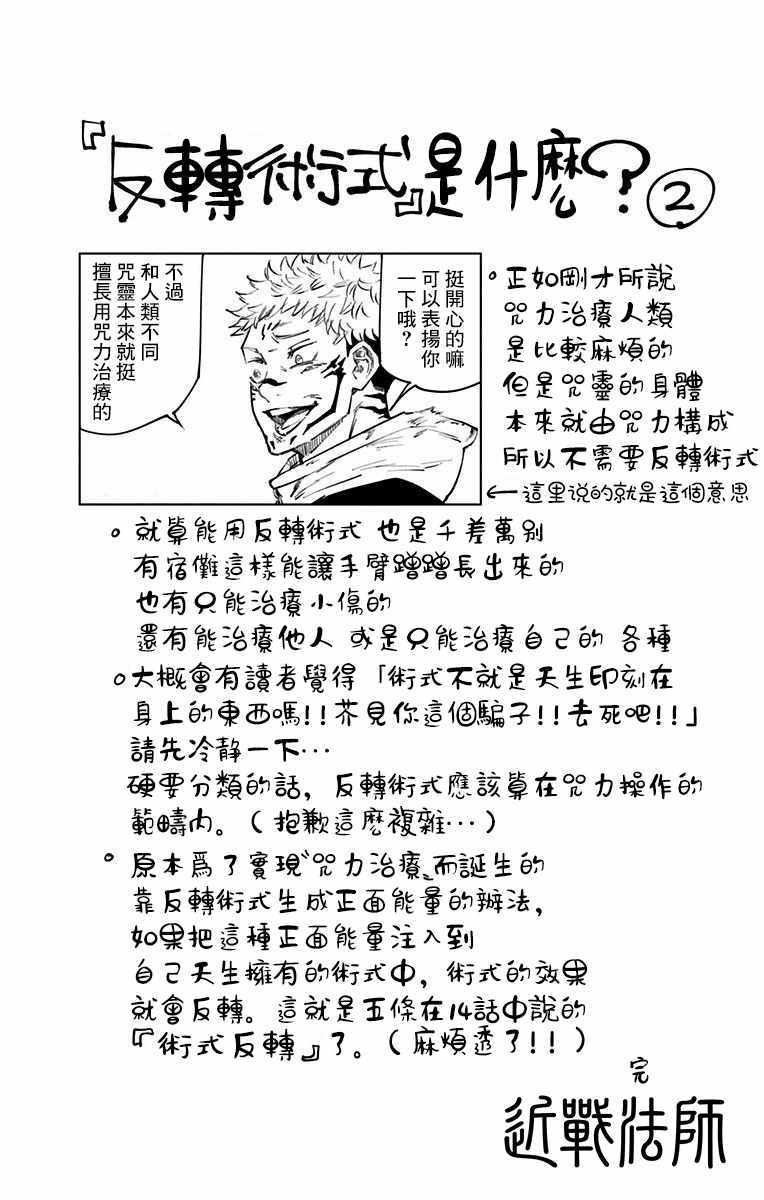 『反轉術式』是什麼？②
挺開心的嘛
可以表揚你
一下哦？
不過
和人類不同
咒靈本來就挺
擅長用咒力治療的
。正如剛才所說
咒力治療人類
是比較麻煩的
但是咒靈的身體
本來就由咒力構成
所以不需要反轉術式
←這里说的就是這個意思
。就算能用反轉術式 也是千差萬别
有宿儺這樣能讓手臂蹭蹭長出來的
也有只能治療小傷的
還有能治療他人 或是只能治療自己的 各種
。大概會有讀者覺得「術式不就是天生印刻在
身上的東西嗎!!芥見你這個騙子!!去死吧!!」
請先冷静一下…
硬要分類的話，反轉術式應該算在咒力操作的
範疇内。（抱歉這麽複雜…）
。原本爲了實現〝咒力治療〟而誕生的
靠反轉術式生成正面能量的辦法，
如果把這種正面能量注入到
自己天生擁有的術式中，術式的效果
就會反轉。這就是五條在14話中說的
『術式反轉』了。（麻煩透了!!）
完
近戰法師